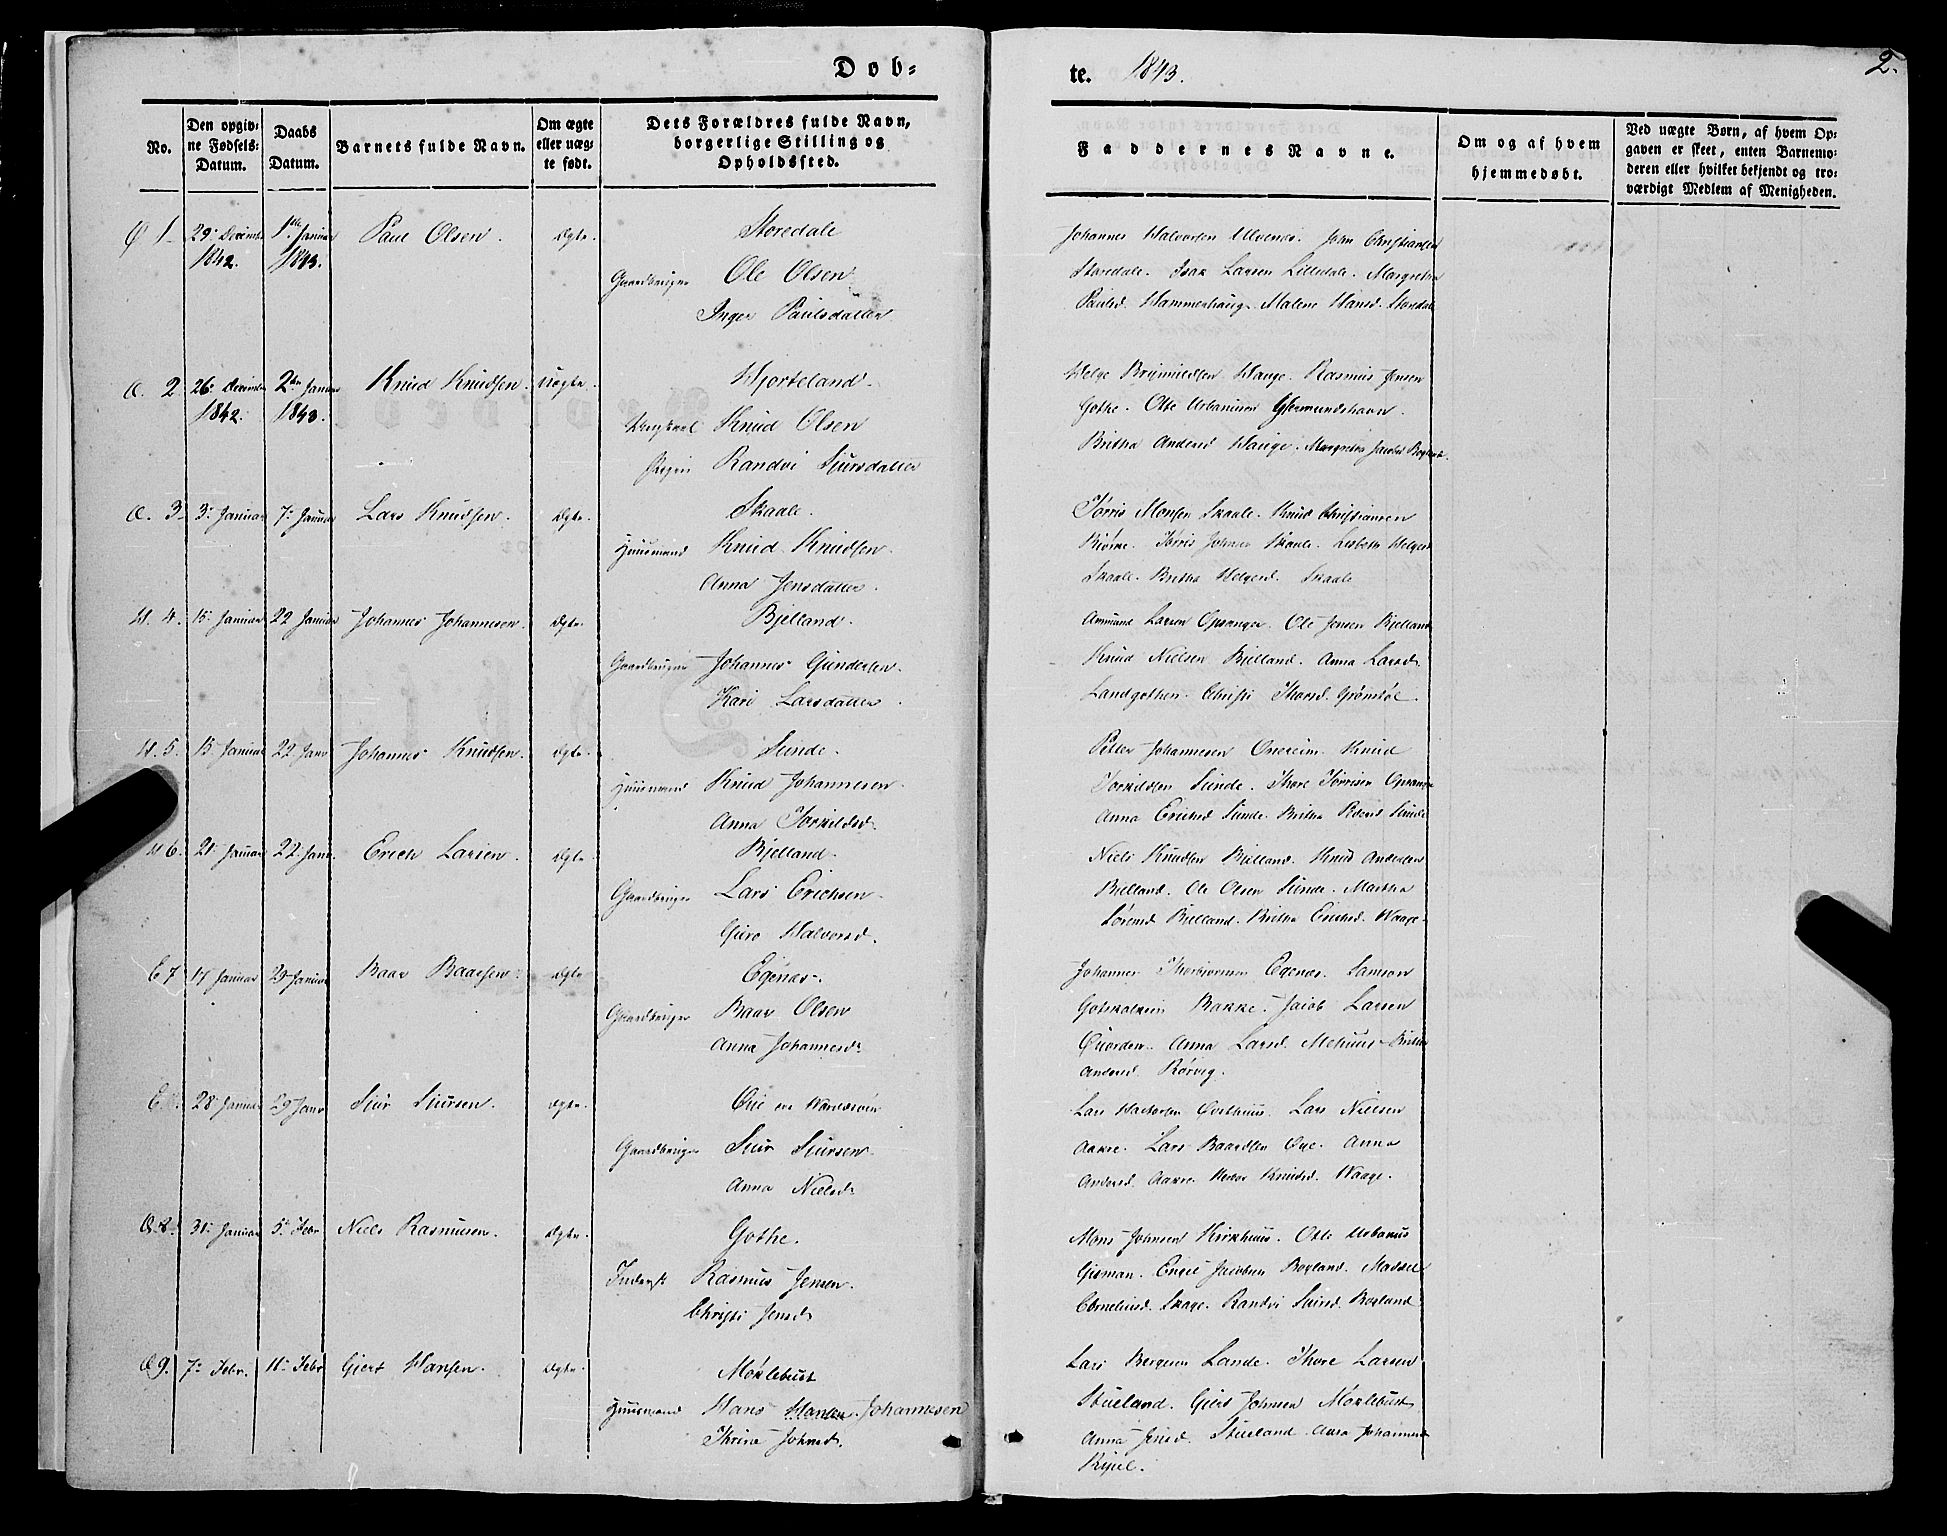 Døb=
te. 1843.
2.
No.
Den opgiv=
ne Fødsels=
Datum.
Daabs
Datum.
Barnets fulde Navn.
Om ægte
eller uæg=
te født.
Dets Forældres fulde Navn,
borgerlige Stilling og
Opholdssted.
Faddernes Navne.
Om og af hvem
hjemmedøbt.
Ved uægte Børn, af hvem Op=
gaven er skeet, enten Barnemo=
deren eller hvilket bekjendt og tro=
værdigt Medlem af Menigheden.
1. 29. Decembr 1ste Januar Paul Olsen. Ægte. Storedale
1842. 1843.
Gaardbruger Ole Olsen
Inger Paulsdatter
Johannes Halvorsen Ulvenæs. John Christiansen
Storedale. Isak Larsen Lilledale. Margretha
Paulsd. Hammerhaug. Malene Hansd. Storedale
2. 26. Decembr 2den Januar Knud Knudsen. Uægte. Hjorteland.
1842. 1843.
Ungkarl Knud Olsen
Pigen Randvi Sjursdatter
Helge Hauge. Rasmus Jensen
Gothe. Otte Urbanusen Gjermundshavn.
Britha Andersd. Hauge. Margretha Jacobsd.
3. 3. Januar 7. Januar Lars Knudsen. Ægte. Skaale.
Huusmand Knud Knudsen.
Anna Jensdatter.
Tørris Monsen Skaale. Knud Christiansen
Tørris Johnsen Skaale. Lisbeth Helgesd.
Skaale. Britha Helgesd. Skaale
4. 15. Januar 22 Januar Johannes Johannesen. Ægte. Bjelland.
Gaardbruger Johannes Gundersen.
Kari Larsdatter.
Ammund Larsen Opsanger. Ole Jensen Bjelland
Knud Nielsen Bjelland. Anna Larsd.
Landgothen. Christi Thorsd. Grønstøl
5. 15 Januar 22 Janr Johannes Knudsen. Ægte. Sunde.
Huusmand Knud Johannesen.
Anna Torkildsd.
Petter Johannesen Oneheim. Knud
Torkildsen Sunde. Thore Tørrisen Opsanger
Anna Erichsd. Sunde. Britha Pedersd. Sunde
6. 21 Januar 22. Janr. Erich Larsen. Ægte. Bjelland.
Gaardbruger Lars Erichsen.
Guro Halvorsd.
Niels Knudsen Bjelland. Knud Andersen
Bjelland. Ole Olsen Sunde. Martha
Sørensd. Bjelland. Britha Erichsd. Waage.
7 14 Januar 29 Januar Baar Baarsen. Ægte Egenæs.
Gaardbruger Baar Olsen
Anna Johannesdr.
Johannes Thorbjørnsen Egenæs. Samson
Gotskalksen Bakke. Jacob Larsen
Anna Larsd. Mehuus. Britha
Andersd. Rørvig.
28. Januar 29 Janr Sjur Sjursen. Ægte.
Gaardbruger Sjur Sjursen.
Anna Nielsdr.
Lars Lars Nielsen
Aakre. Lars Baardsen Anna
Andersd. Aakre. Knudsd. Waage.
8. 31. Januar 5. Febr Niels Rasmusen. Ægte. Gothe.
Inderst Rasmus Jensen.
Christi Jensdr
Mons Johnsen Kirkhuus. Otte Urbanus
Gisman. Engel Jacobsen Røyland. Madsel
Corneliusd. Skage. Randvi Sjursd. Røyland
9. 7. Febr. 11. Febr Giert Hansen. Ægte. Møklebust
Huusmand Hans Hansen Johannesen
Thrine Johnsd.
Lars Bergesen Lande. Thore Larsen
Stueland. Giert Johnsen Møklebust
Anna Jensd. Stueland. Anna Johannesd.